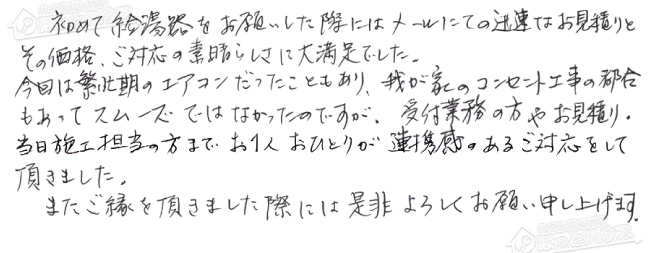 初めて給湯器をお願いした際にはメールにての迅速なお見積りと
その価格、ご対応の素晴らしさに大満足でした。
今回は繁忙期のエアコンだったこともあり、我が家のコンセント工事の都合
もあってスムーズではなかったのですが、受付業務の方やお見積り、
当日施工担当の方まで、お1人おひとりが連携感のあるご対応をして
頂きました。
またご縁を頂きました際には是非よろしくお願い申し上げます。